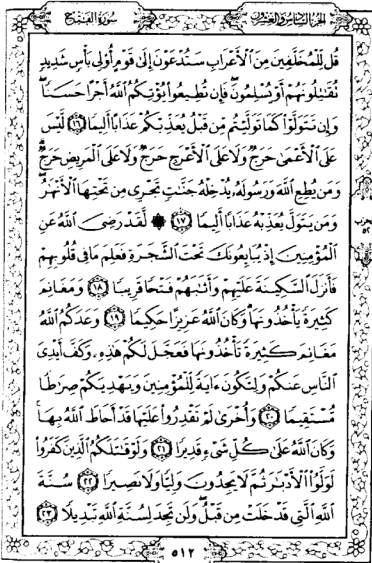 الجزء السادس والعشرون
سورة الفتح
قُل لِّلْمُخَلَّفِينَ مِنَ ٱلْأَعْرَابِ سَتُدْعَوْنَ إِلَىٰ قَوْمٍ أُو۟لِى بَأْسٍ شَدِيدٍ
تُقَٰتِلُونَهُمْ أَوْ يُسْلِمُونَ ۖ فَإِن تُطِيعُوا۟ يُؤْتِكُمُ ٱللَّهُ أَجْرًا حَسَنًا ۖ
وَإِن تَتَوَلَّوْا۟ كَمَا تَوَلَّيْتُم مِّن قَبْلُ يُعَذِّبْكُمْ عَذَابًا أَلِيمًا ١٦ لَّيْسَ
عَلَى ٱلْأَعْمَىٰ حَرَجٌ وَلَا عَلَى ٱلْأَعْرَجِ حَرَجٌ وَلَا عَلَى ٱلْمَرِيضِ حَرَجٌ ۗ
وَمَن يُطِعِ ٱللَّهَ وَرَسُولَهُۥ يُدْخِلْهُ جَنَّٰتٍ تَجْرِى مِن تَحْتِهَا ٱلْأَنْهَٰرُ ۖ
وَمَن يَتَوَلَّ يُعَذِّبْهُ عَذَابًا أَلِيمًا ١٧ ۞ لَّقَدْ رَضِىَ ٱللَّهُ عَنِ
ٱلْمُؤْمِنِينَ إِذْ يُبَايِعُونَكَ تَحْتَ ٱلشَّجَرَةِ فَعَلِمَ مَا فِى قُلُوبِهِمْ
فَأَنزَلَ ٱلسَّكِينَةَ عَلَيْهِمْ وَأَثَٰبَهُمْ فَتْحًا قَرِيبًا ١٨ وَمَغَانِمَ
كَثِيرَةً يَأْخُذُونَهَا ۗ وَكَانَ ٱللَّهُ عَزِيزًا حَكِيمًا ١٩ وَعَدَكُمُ ٱللَّهُ
مَغَانِمَ كَثِيرَةً تَأْخُذُونَهَا فَعَجَّلَ لَكُمْ هَٰذِهِۦ وَكَفَّ أَيْدِىَ
ٱلنَّاسِ عَنكُمْ وَلِتَكُونَ ءَايَةً لِّلْمُؤْمِنِينَ وَيَهْدِيَكُمْ صِرَٰطًا
مُّسْتَقِيمًا ٢٠ وَأُخْرَىٰ لَمْ تَقْدِرُوا۟ عَلَيْهَا قَدْ أَحَاطَ ٱللَّهُ بِهَا ۚ
وَكَانَ ٱللَّهُ عَلَىٰ كُلِّ شَىْءٍ قَدِيرًا ٢١ وَلَوْ قَٰتَلَكُمُ ٱلَّذِينَ كَفَرُوا۟
لَوَلَّوُا۟ ٱلْأَدْبَٰرَ ثُمَّ لَا يَجِدُونَ وَلِيًّا وَلَا نَصِيرًا ٢٢ سُنَّةَ
ٱللَّهِ ٱلَّتِى قَدْ خَلَتْ مِن قَبْلُ ۖ وَلَن تَجِدَ لِسُنَّةِ ٱللَّهِ تَبْدِيلًا ٢٣
٥١٢